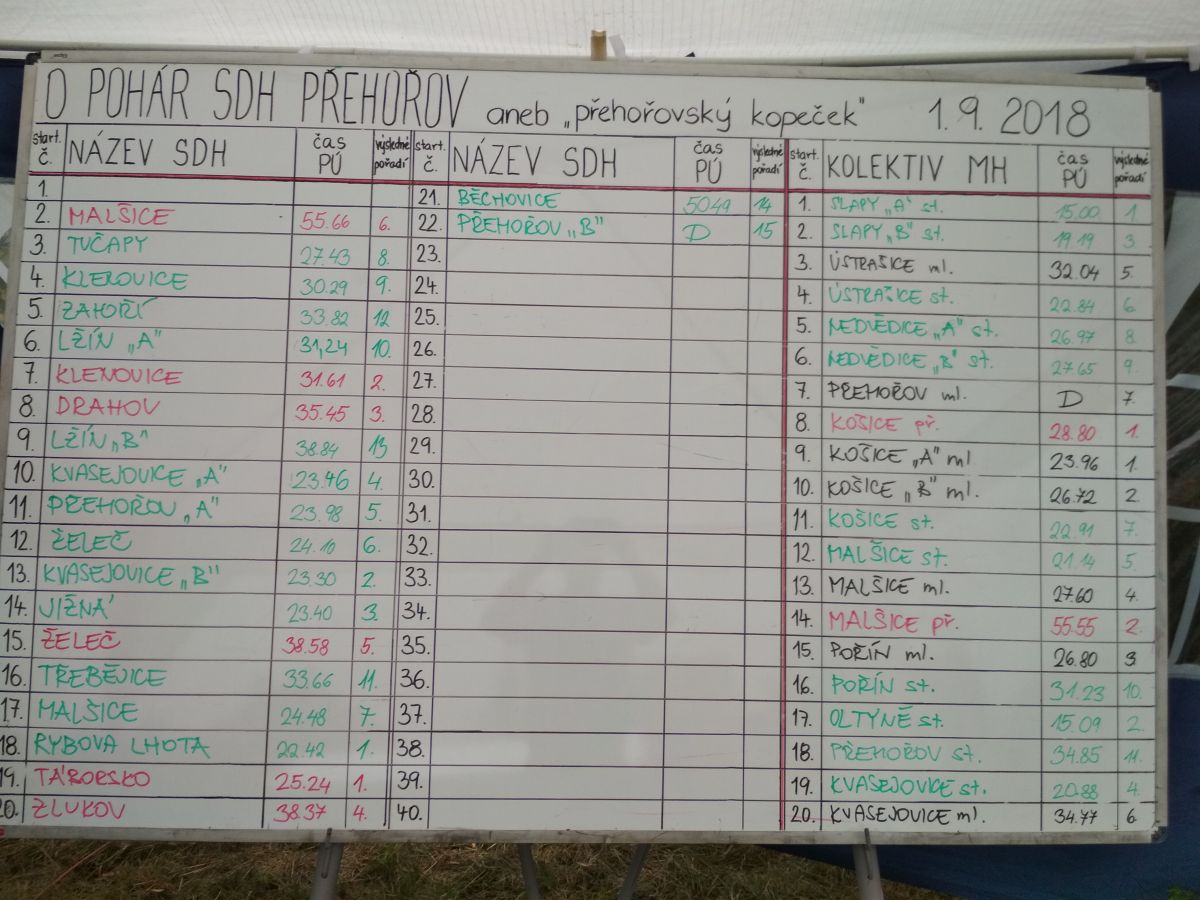 O POHÁR SDH PŘEHOŘOV aneb „přehořovský kopeček" 1.9. 2018
start. č. NÁZEV SDH čas PÚ výsledné pořadí start. č. NÁZEV SDH čas PÚ výsledné pořadí start. č. KOLEKTIV MH čas PÚ výsledné pořadí
1. 21. BĚCHOVICE 5049 14 1. SLAPY „A" st. 15.00 1.
2. MALŠICE 55.66 6. 22. PŘEHOŘOV „B" D 15 2. SLAPY „B" st. 19.19 3.
3. TUČAPY 27.43 8. 23. 3. ÚSTRAŠICE ml. 32.04 5.
4. KLEKOVICE 30.29 9. 24. 4. ÚSTRAŠICE st. 22.84 6.
5. ZAHOŘÍ 33.82 12 25. 5. NEDVĚDICE „A" st. 26.97 8.
6. LŽÍN „A" 31,24 10. 26. 6. NEDVĚDICE „B" st. 27.65 9.
7. KLENOVICE 31.61 2. 27. 7. PŘEHOŘOV ml. D 7.
8. DRAHOV 35.45 3. 28. 8. KOŠICE př. 28.80 1.
9. LŽÍN „B" 38.84 13 29. 9. KOŠICE „A" ml 23.96 1.
10. KVASEJOVICE „A" 23.46 4. 30. 10. KOŠICE „B" ml. 26.72 2.
11. PŘEHOŘOV „A" 23.98 5. 31. 11. KOŠICE st. 22.91 7.
12. ŽELEČ 24.10 6. 32. 12. MALŠICE st. 21.14 5.
13. KVASEJOVICE „B" 23.30 2. 33. 13. MALŠICE ml. 27.60 4.
14. JIŽNÁ 23.40 3. 34. 14. MALŠICE př. 55.55 2.
15. ŽELEČ 38.58 5. 35. 15. POŘÍN ml. 26.80 3
16. TŘEBĚJICE 33.66 11. 36. 16. POŘÍN st. 31.23 10.
17. MALŠICE 24.48 7. 37. 17. OLTYNĚ st. 15.09 2.
18. RYBOVA LHOTA 22.42 1. 38. 18. PŘEHOŘOV st. 34.85 11.
19. TÁBORSKO 25.24 1. 39. 19. KVASEJOVICE st. 20.88 4.
20. ZLUKOV 38.37 4. 40. 20. KVASEJOVICE ml. 34.77 6